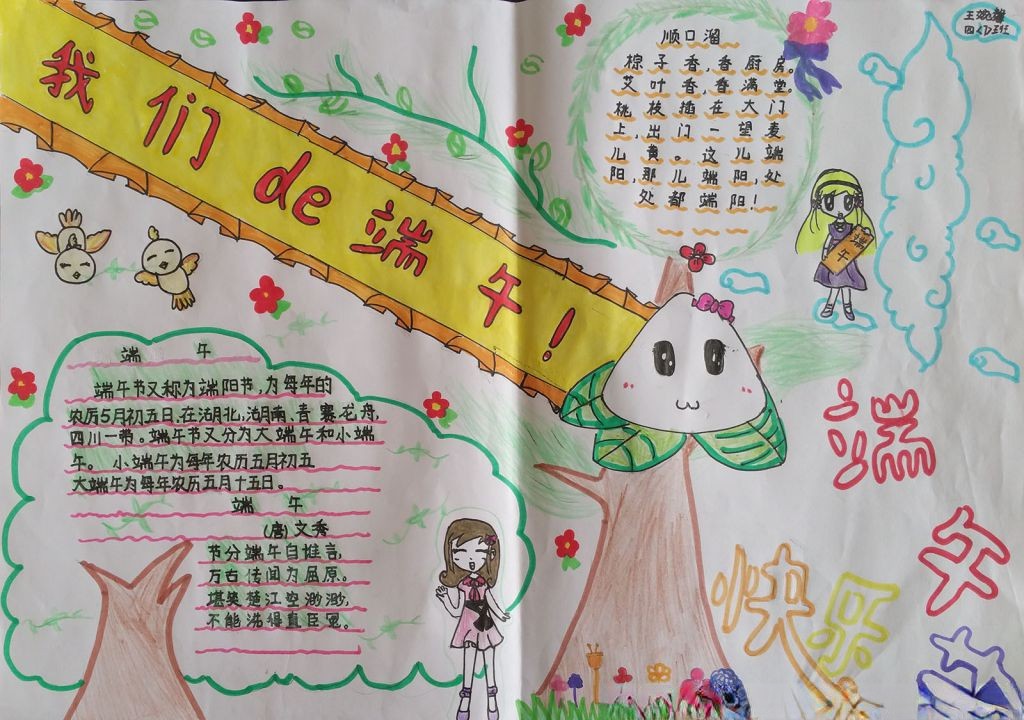 我们de端午!
顺口溜
棕子香,香厨房。
艾叶香,香满堂。
桃枝插在大门
上,出门一望麦
儿黄。这儿端
阳,那儿端阳,处
处都端阳!
四(1)班
端午
端午
端午节又称为端阳节,为每年的
农历5月初五日、在湖北,湖南、青寨龙舟,
四川一带。端午节又分为大端午和小端
午。小端午为每年农历五月初五
大端午为每年农历五月十五日。
端午
(唐)文秀
节分端午自谁言,
万古传闻为屈原。
堪笑楚江空渺渺,
不能洗得直臣冤。
端
午
快乐